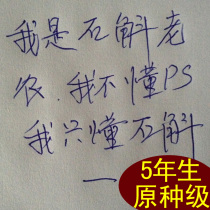 我是石斛老
农.我不懂PS
我只懂石斛
一
5年生
原种级